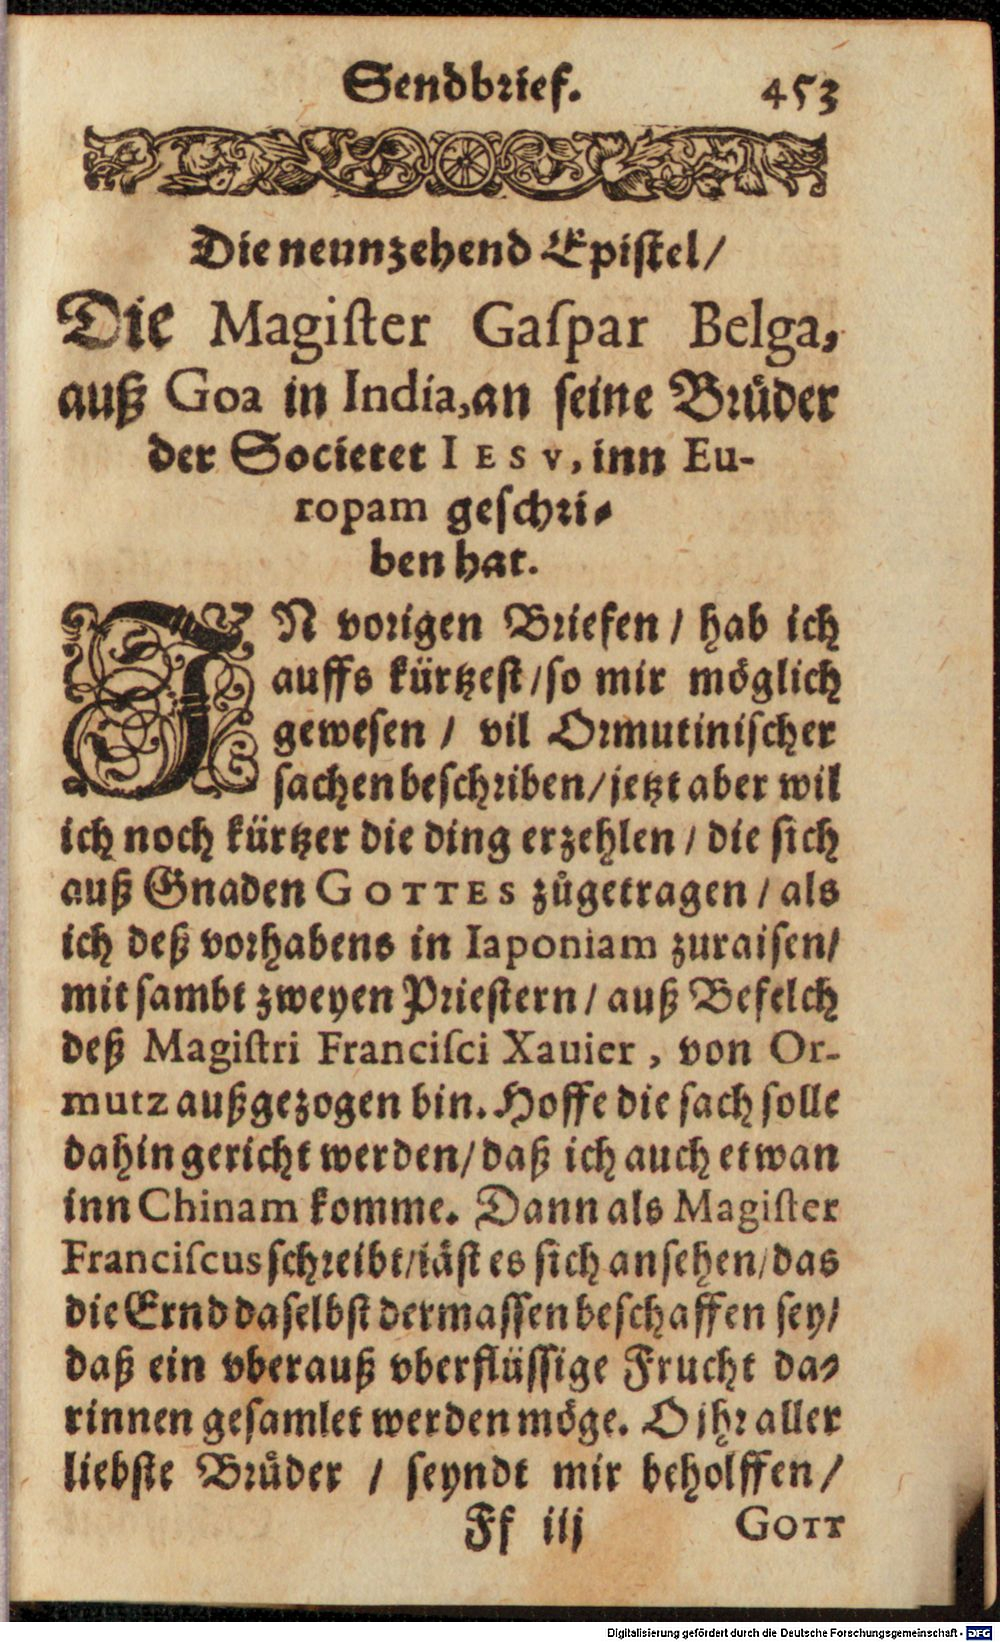 Sendbrief. 453
Die neunzehend Epistel/
Die Magiſter Gaſpar Belga,
auß Goa in India, an ſeine Bruͤder
der Societet IESV, inn Eu-
ropam geſchri-
ben hat.
IN vorigen Briefen / hab ich
auffs kürtzeſt / so mir möglich
geweſen / vil Ormutiniſcher
sachen beſchriben / jetzt aber wil
ich noch kürtzer die ding erzehlen / die ſich
auß Gnaden GOTTES zůgetragen / als
ich deß vorhabens in Iaponiam zuraiſen/
mit ſambt zweyen Prieſtern / auß Befelch
deß Magiſtri Franciſci Xauier, von Or-
mutz außgezogen bin. Hoffe die ſach ſolle
dahin gericht werden / daß ich auch etwan
inn Chinam komme. Dann als Magiſter
Franciſcus ſchreibt / läſt es ſich anſehen / das
die Ernd daſelbſt dermaſſen beſchaffen ſey/
daß ein vberauß vberflüſſige Frucht da-
rinnen geſamlet werden möge. O jhr aller
liebſte Bruͤder / ſeyndt mir beholffen /
Ff iij GOTT
Digitalisierung gefördert durch die Deutsche Forschungsgemeinschaft - DFG